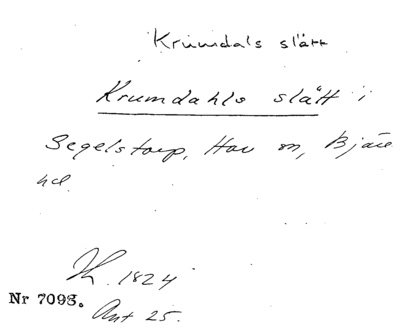 Krumdals slätt
Krumdahls slätt i
Segelstorp, Hov sn, Bjäre
hd.
Jk. 1824
Nr 7098.
Akt 25.